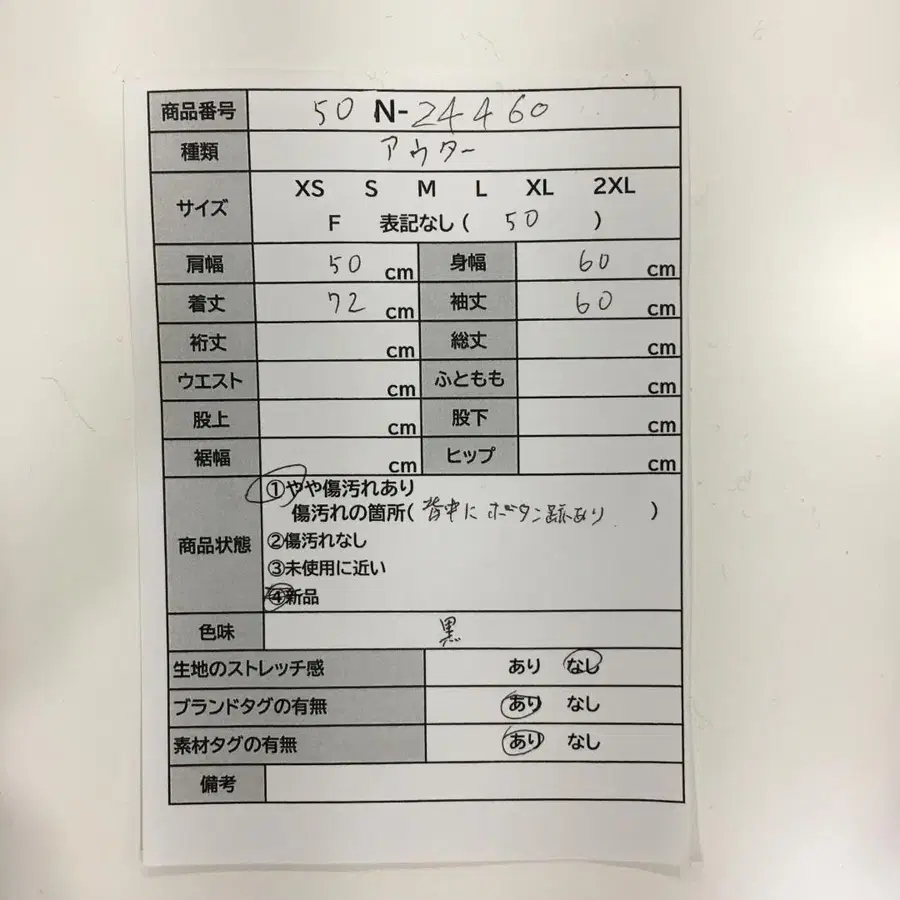 商品番号 50 N-24460
種類 アウター
サイズ XS S M L XL 2XL
F 表記なし( 50 )
肩幅 50 cm 身幅 60 cm
着丈 72 cm 袖丈 60 cm
裄丈 cm 総丈 cm
ウエスト cm ふともも cm
股上 cm 股下 cm
裾幅 cm ヒップ cm
商品状態 ①やや傷汚れあり
傷汚れの箇所( 背中に ボタン跡あり )
②傷汚れなし
③未使用に近い
④新品
色味 黒
生地のストレッチ感 あり なし
ブランドタグの有無 あり なし
素材タグの有無 あり なし
備考